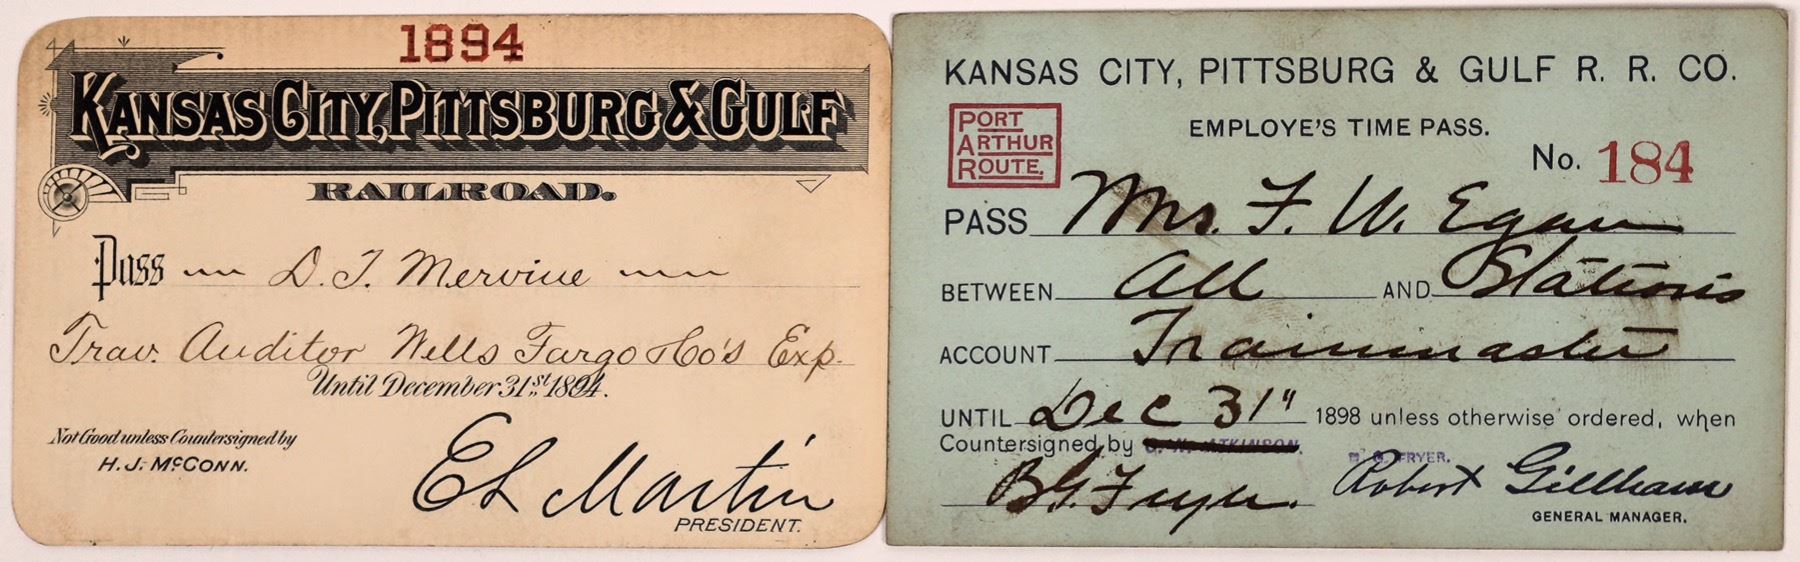 1894
KANSAS CITY, PITTSBURG & GULF
RAILROAD.
Pass D. T. Mervine
Trav. Auditor Wells Fargo & Co's Exp.
Until December 31st 1894.
Not Good unless Countersigned by
H. J. McCONN.
E L Martin
PRESIDENT.
KANSAS CITY, PITTSBURG & GULF R. R. CO.
PORT
ARTHUR
ROUTE.
EMPLOYE'S TIME PASS.
No. 184
PASS Mrs. F. W. Egan
BETWEEN All AND Stations
ACCOUNT Trainmaster
UNTIL Dec 31" 1898 unless otherwise ordered, when
Countersigned by ATKINSON.
FRYER.
B G Fryer. Robert Gillham
GENERAL MANAGER.